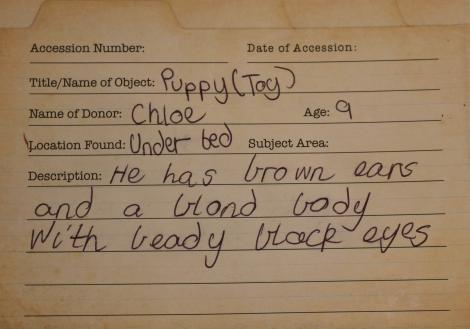 Accession Number: Date of Accession:
Title/Name of Object: Puppy (Toy)
Name of Donor: Chloe Age: 9
Location Found: Under bed Subject Area:
Description: He has brown ears
and a blond body
With beady black eyes